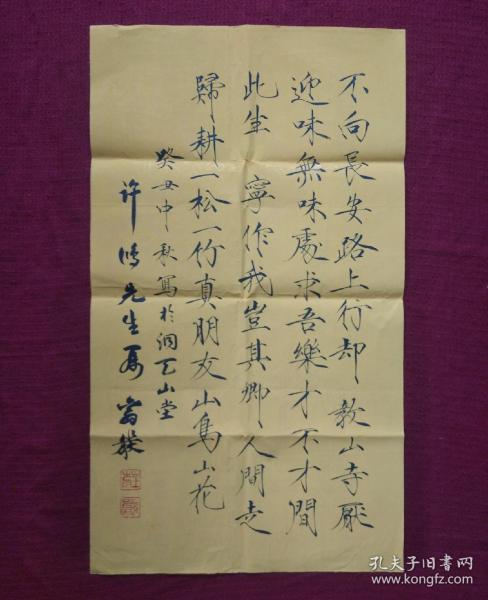 不向長安路上行却教山寺厭
迎味無味處求吾樂才不才間
此生 寧作我豈其卿人間走
歸耕一松一竹真朋友山鳥山花
癸丑中秋寫於洞天山堂
许鴻先生屬
孔夫子旧书网
www.kongfz.com